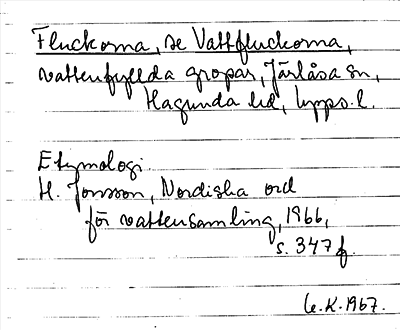 Fluckorna, se Vattfluckorna,
vattenfyllda gropar, Järlåsa sn,
Hagunda hd, Upps.l.
Etymologi.
H. Jonsson, Nordiska ord
för vattensamling, 1966,
s. 347 f.
K. 1967.